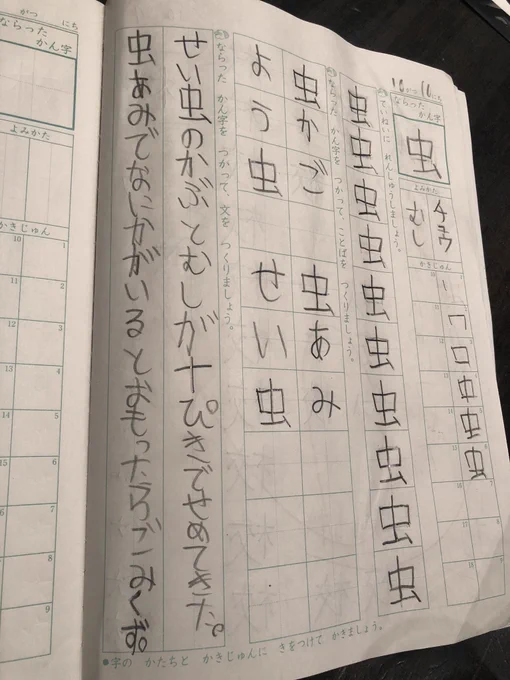 10がつ16にち
ならった かん字
虫
よみかた
チュウ
むし
かきじゅん
ていねいに れんしゅうしましょう。
虫虫虫虫虫虫虫虫虫虫
ならった かん字を つかって、ことばを つくりましょう。
虫かご 虫あみ
よう虫 せい虫
ならった かん字を つかって、文を つくりましょう。
せい虫のかぶとむしが十ぴきでせめてきた。
虫あみでなにかがいるとおもったらごみくず。
●字の かたちと かきじゅんに きをつけて かきましょう。
がつ にち
ならった かん字
よみかた
かきじゅん
10 1
11 2
12 3
13 4
14 5
15 6
16 7
17 8
18 9